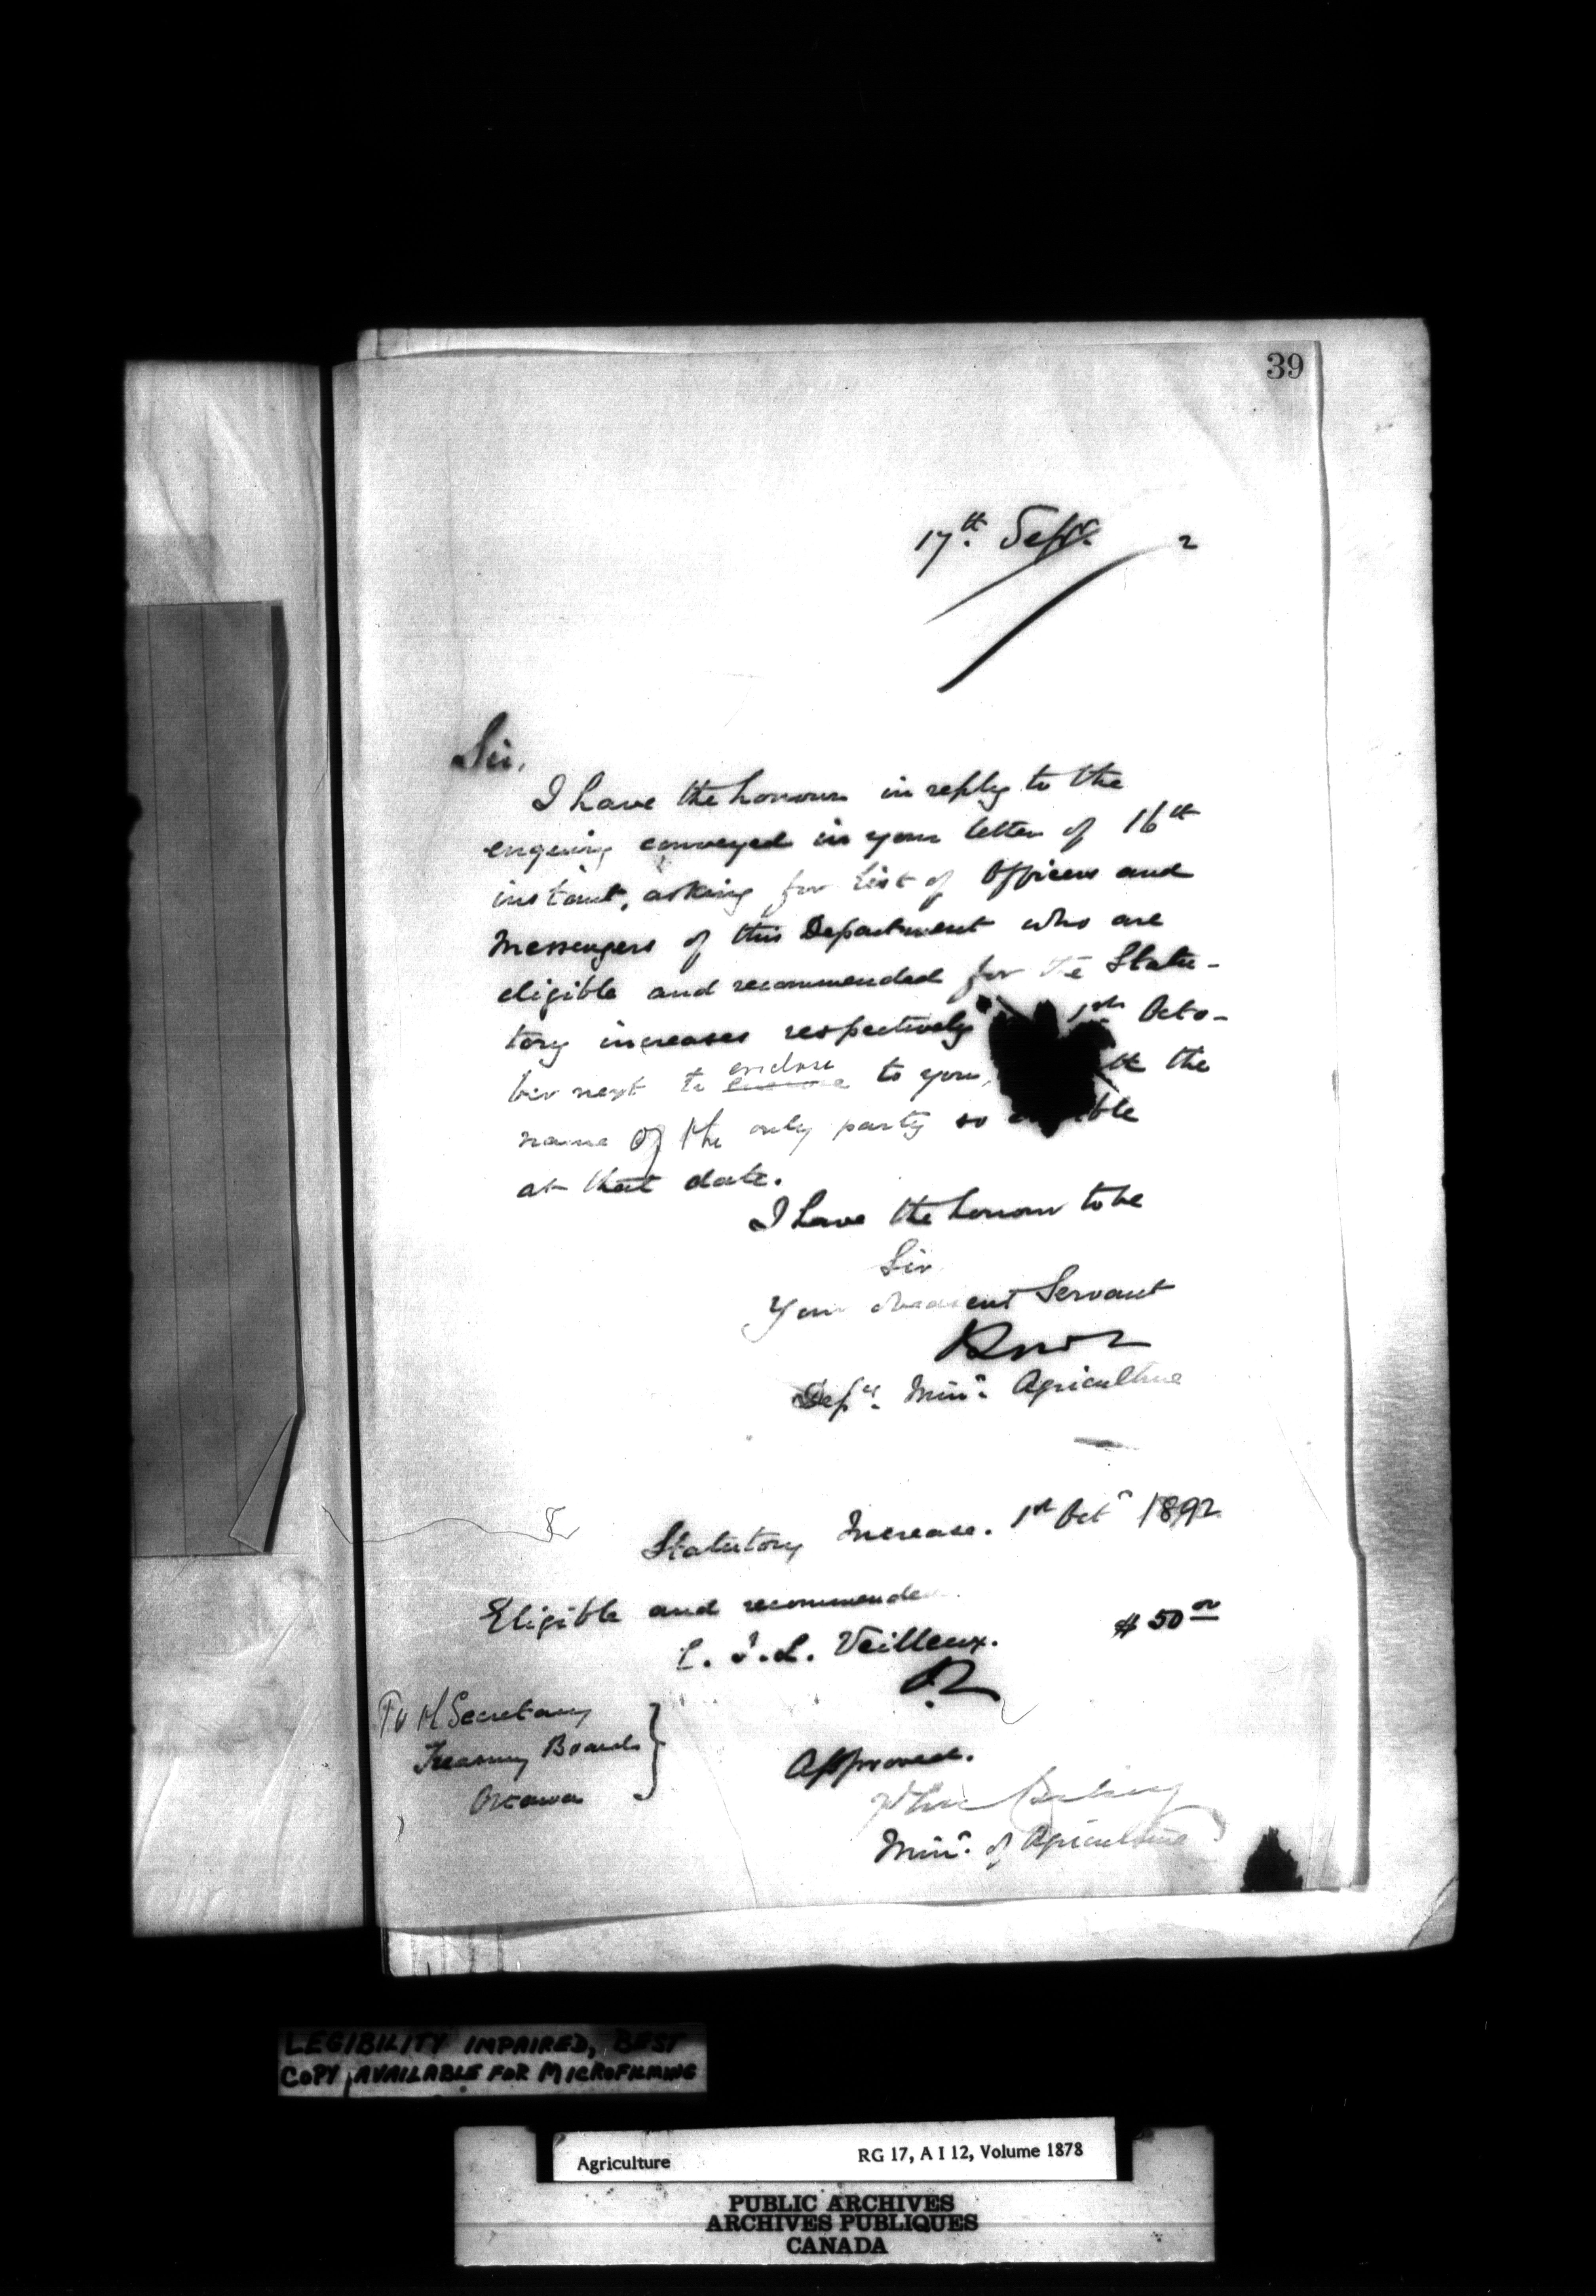 39
17th. Septr. 2
Sir,
I have the honour in reply to the
enquiry conveyed in your letter of 16th
instant, asking for list of Officers and
Messengers of this Department who are
eligible and recommended for the Statu-
tory increases respectively 1st Octo-
ber next to enclose to you, the
name of the only party so
at that date.
I have the honour to be
Sir
Your obedient Servant
Depy. Minr. Agriculture
Statutory Increase. 1st Octr 1892
Eligible and recommended
L. J. L. Veilleux. $ 50 00
To the Secretary
Treasury Board
Ottawa
Approved.
Minr. of Agriculture
LEGIBILITY IMPAIRED, BEST
COPY AVAILABLE FOR MICROFILMING
Agriculture RG 17, A I 12, Volume 1878
PUBLIC ARCHIVES
ARCHIVES PUBLIQUES
CANADA